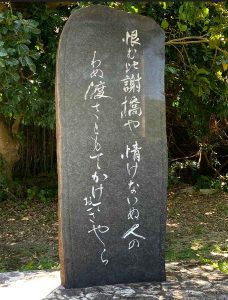 恨む比謝橋や 情けないぬ人の
わぬ渡さともてかけておきやら